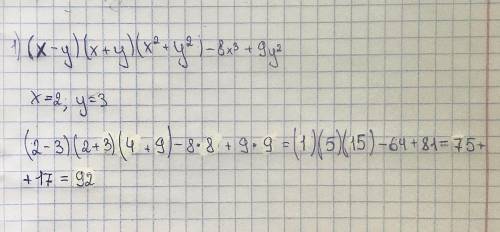 1) (x-y)(x+y)(x²+y²)-8x³+9y²
x=2; y=3
(2-3)(2+3)(4+9)-8·8+9·9=(1)(5)(15)-64+81=75+
+17=92